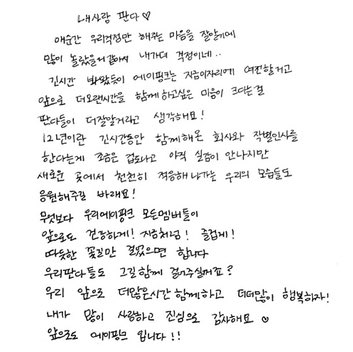 내사랑 판다♡
매순간 우리걱정만 해주는 마음을 잘알기에
많이 놀랐을거같아서 내가더 걱정이네..
긴시간 봐왔듯이 에이핑크는 지금이자리에 여전할거고
앞으로 더오랜시간을 함께하고싶은 마음이 크다는걸
판다들이 더잘알거라고 생각해요!
12년이란 긴시간동안 함께해온 회사와 작별인사를
한다는게 조금은 겁도나고 아직 실감이 안나지만
새로운 곳에서 천천히 적응해나가는 우리의 모습들도
응원해주길 바래요!
무엇보다 우리에이핑크 모든멤버들이
앞으로도 건강하게! 지금처럼! 즐겁게!
따뜻한 꽃길만 걸었으면 합니다
우리판다들도 그길함께 걸어주실꺼죠?
우리 앞으로 더많은시간함께하고 더더많이 행복하자!
내가 많이 사랑하고 진심으로 감사해요♡
앞으로도 에이핑크 입니다!!